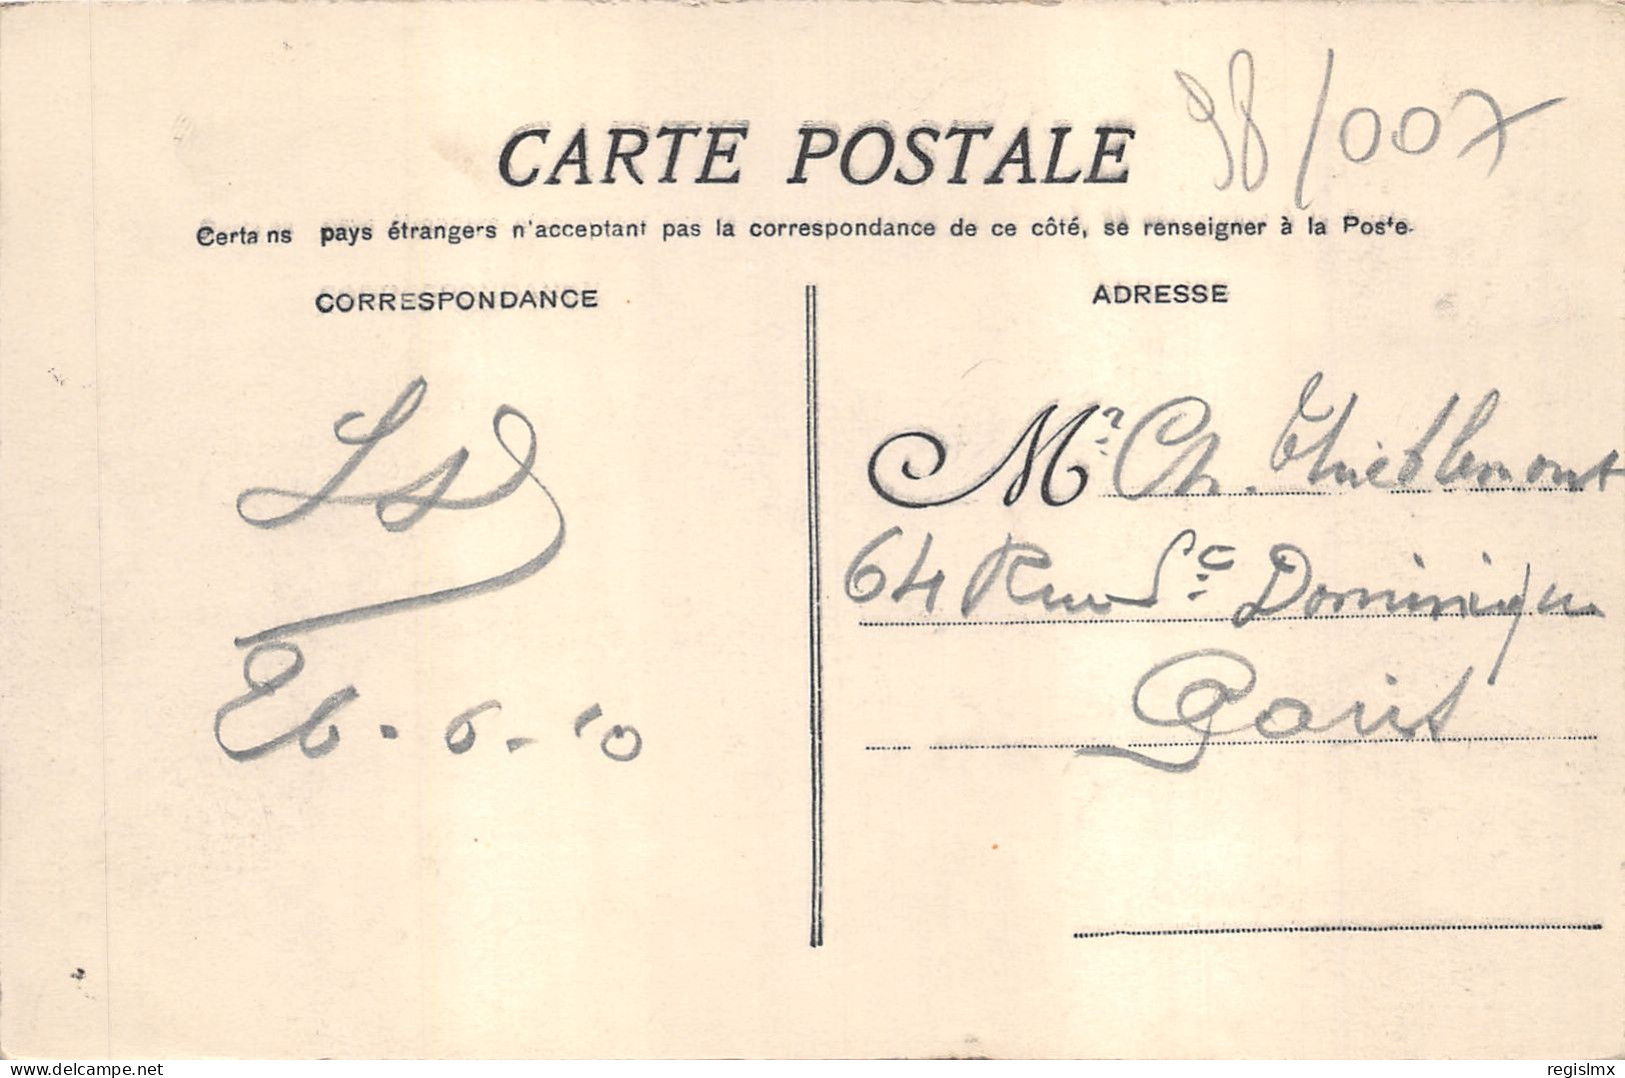 98/007
CARTE POSTALE
Certains pays étrangers n'acceptant pas la correspondance de ce côté, se renseigner à la Poste.
CORRESPONDANCE
ADRESSE
Mr Ch. Thiéblemont
64 Rue St Dominique
Paris
26-6-10
delcampe.net
regislmx